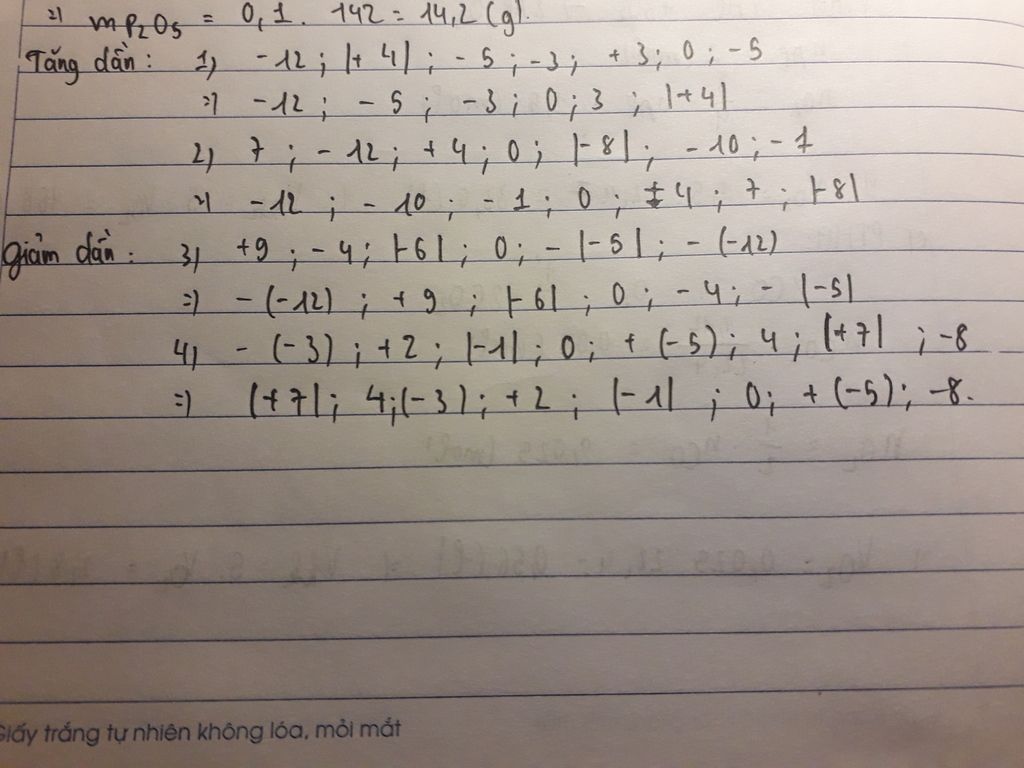 =) mP2O5 = 0,1. 142 = 14,2 (g).
Tăng dần: 1) -12 ; |+4| ; -5 ; -3 ; +3 ; 0 ; -5
=) -12 ; -5 ; -3 ; 0 ; 3 ; |+4|
2) 7 ; -12 ; +4 ; 0 ; |-8| ; -10 ; -1
=) -12 ; -10 ; -1 ; 0 ; +4 ; 7 ; |-8|
Giảm dần: 3) +9 ; -4 ; |-6| ; 0 ; -|-5| ; -(-12)
=) -(-12) ; +9 ; |-6| ; 0 ; -4 ; -|-5|
4) -(-3) ; +2 ; |-1| ; 0 ; +(-5) ; 4 ; |+7| ; -8
=) |+7| ; 4 ; (-3) ; +2 ; |-1| ; 0 ; +(-5) ; -8.
Giấy trắng tự nhiên không lóa, mỏi mắt